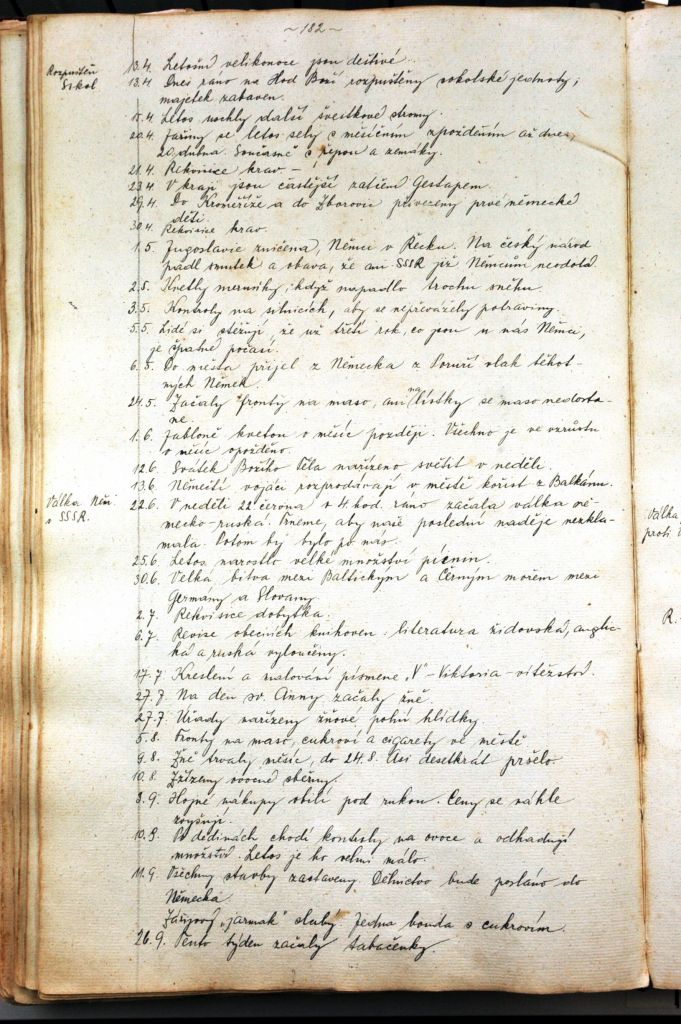 ~ 182 ~
Rozpuštěn
Sokol
13.4. Letošní velikonoce jsou deštivé.
13.4. Dnes ráno na Hod Boží rozpuštěny sokolské jednoty,
majetek zabaven.
15.4. Letos uschly další švestkové stromy.
20.4. Jařiny se letos sely s měsíčním zpožděním až dnes,
20. dubna. Současně s řepou a zemáky.
21.4. Rekvisice krav. –
23.4. V kraji jsou častější zatčení Gestapem.
29.4. Do Kroměříže a do Zborovic přivezeny prvé německé
děti.
30.4. Rekvisice krav.
1.5. Jugoslavie zničena, Němci v Řecku. Na český národ
padl smutek a obava, že ani SSSR již Němcům neodolá.
2.5. Kvetly meruňky, když napadlo trochu sněhu.
3.5. Kontroly na silnicích, aby se nepřevážely potraviny.
5.5. Lidé si stěžují, že už třetí rok, co jsou u nás Němci,
je špatné počasí.
6.5. Do města přijel z Německa z Porurí vlak těhot-
ných Němek.
24.5. Začaly fronty na maso, ani na lístky se maso nedosta-
ne.
1.6. Jabloně kvetou o měsíc později. Všechno je ve vzrůstu
o měsíc opožděno.
12.6. Svátek Božího Těla nařízeno světit v neděli.
13.6. Němečtí vojáci rozprodávají v městě kořist z Balkánu.
Válka Něm.
s SSSR.
22.6. V neděli 22. června o 4. hod. ráno začala válka ně-
mecko-ruská. Trneme, aby naše poslední naděje nezkla-
mala. Potom by bylo po nás.
25.6. Letos narostlo velké množství pícnin.
30.6. Velká bitva mezi Baltickým a Černým mořem mezi
Germány a Slovany.
2.7. Rekvisice dobytka.
6.7. Revise obecních knihoven: literatura židovská, anglic-
ká a ruská vyloučeny.
17.7. Kreslení a malování písmene „V" – Viktoria – vítězství.
27.7. Na den sv. Anny začaly žně.
27.7. Úřady nařízeny žňové polní hlídky.
5.8. Fronty na maso, cukroví a cigarety ve městě
9.8. Žně trvaly měsíc, do 24.8. Asi desetkrát pršelo.
10.8. Zřízeny ovocné sběrny.
3.9. Hojné nákupy obilí pod rukou. Ceny se náhle
zvyšují.
10.9. Po dědinách chodí kontroly na ovoce a odhadují
množství. Letos je ho velmi málo.
11.9. Všechny stavby zastaveny. Dělnictvo bude posláno do
Německa.
Zářijový „jarmak" slabý. Jedna bouda s cukrovím.
26.9. Tento týden začaly tabačenky.
Válka
proti
R.